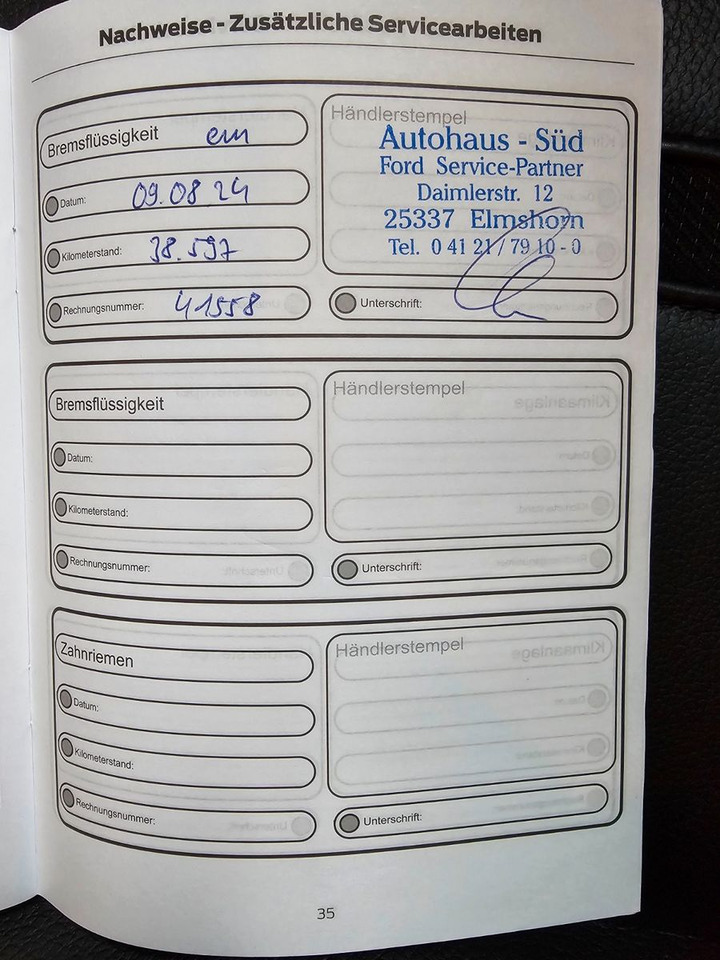 Nachweise - Zusätzliche Servicearbeiten
Bremsflüssigkeit
Datum: 09.08 24
Kilometerstand: 38.597
Rechnungsnummer: 41558
Händlerstempel
Autohaus - Süd
Ford Service-Partner
Daimlerstr. 12
25337 Elmshorn
Tel. 0 41 21 / 79 10 - 0
Unterschrift:
Bremsflüssigkeit
Datum:
Kilometerstand:
Rechnungsnummer:
Händlerstempel
Unterschrift:
Zahnriemen
Datum:
Kilometerstand:
Rechnungsnummer:
Händlerstempel
Unterschrift:
35